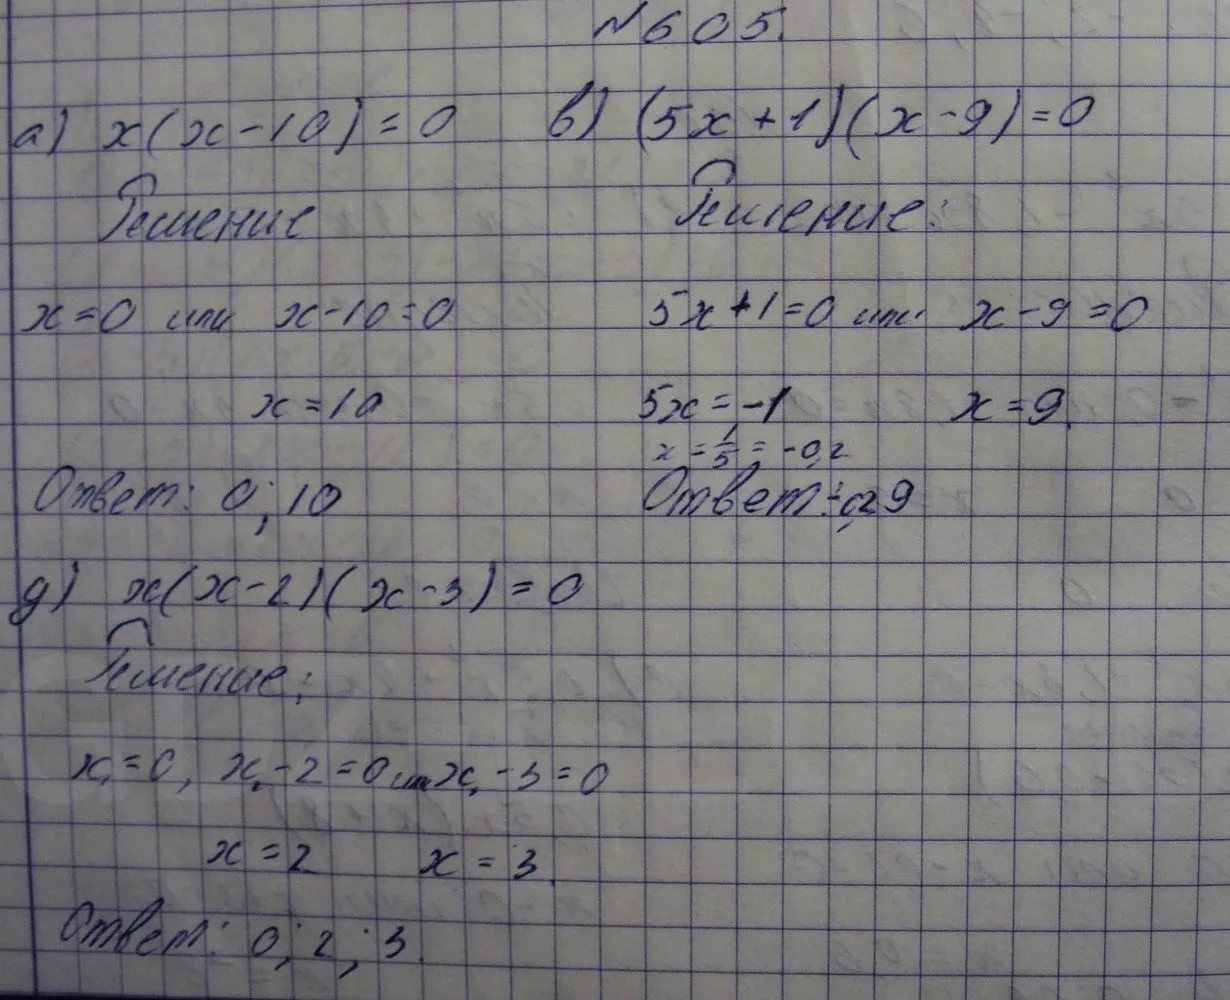 №605.
а) x(x-10)=0
Решение
x=0 или x-10=0
x=10
Ответ: 0; 10
в) (5x+1)(x-9)=0
Решение:
5x+1=0 или x-9=0
5x=-1 x=9.
x=1/5=-0,2
Ответ: -0,2 9
д) x(x-2)(x-3)=0
Решение:
x=0, x-2=0 или x-3=0
x=2 x=3.
Ответ: 0; 2; 3.